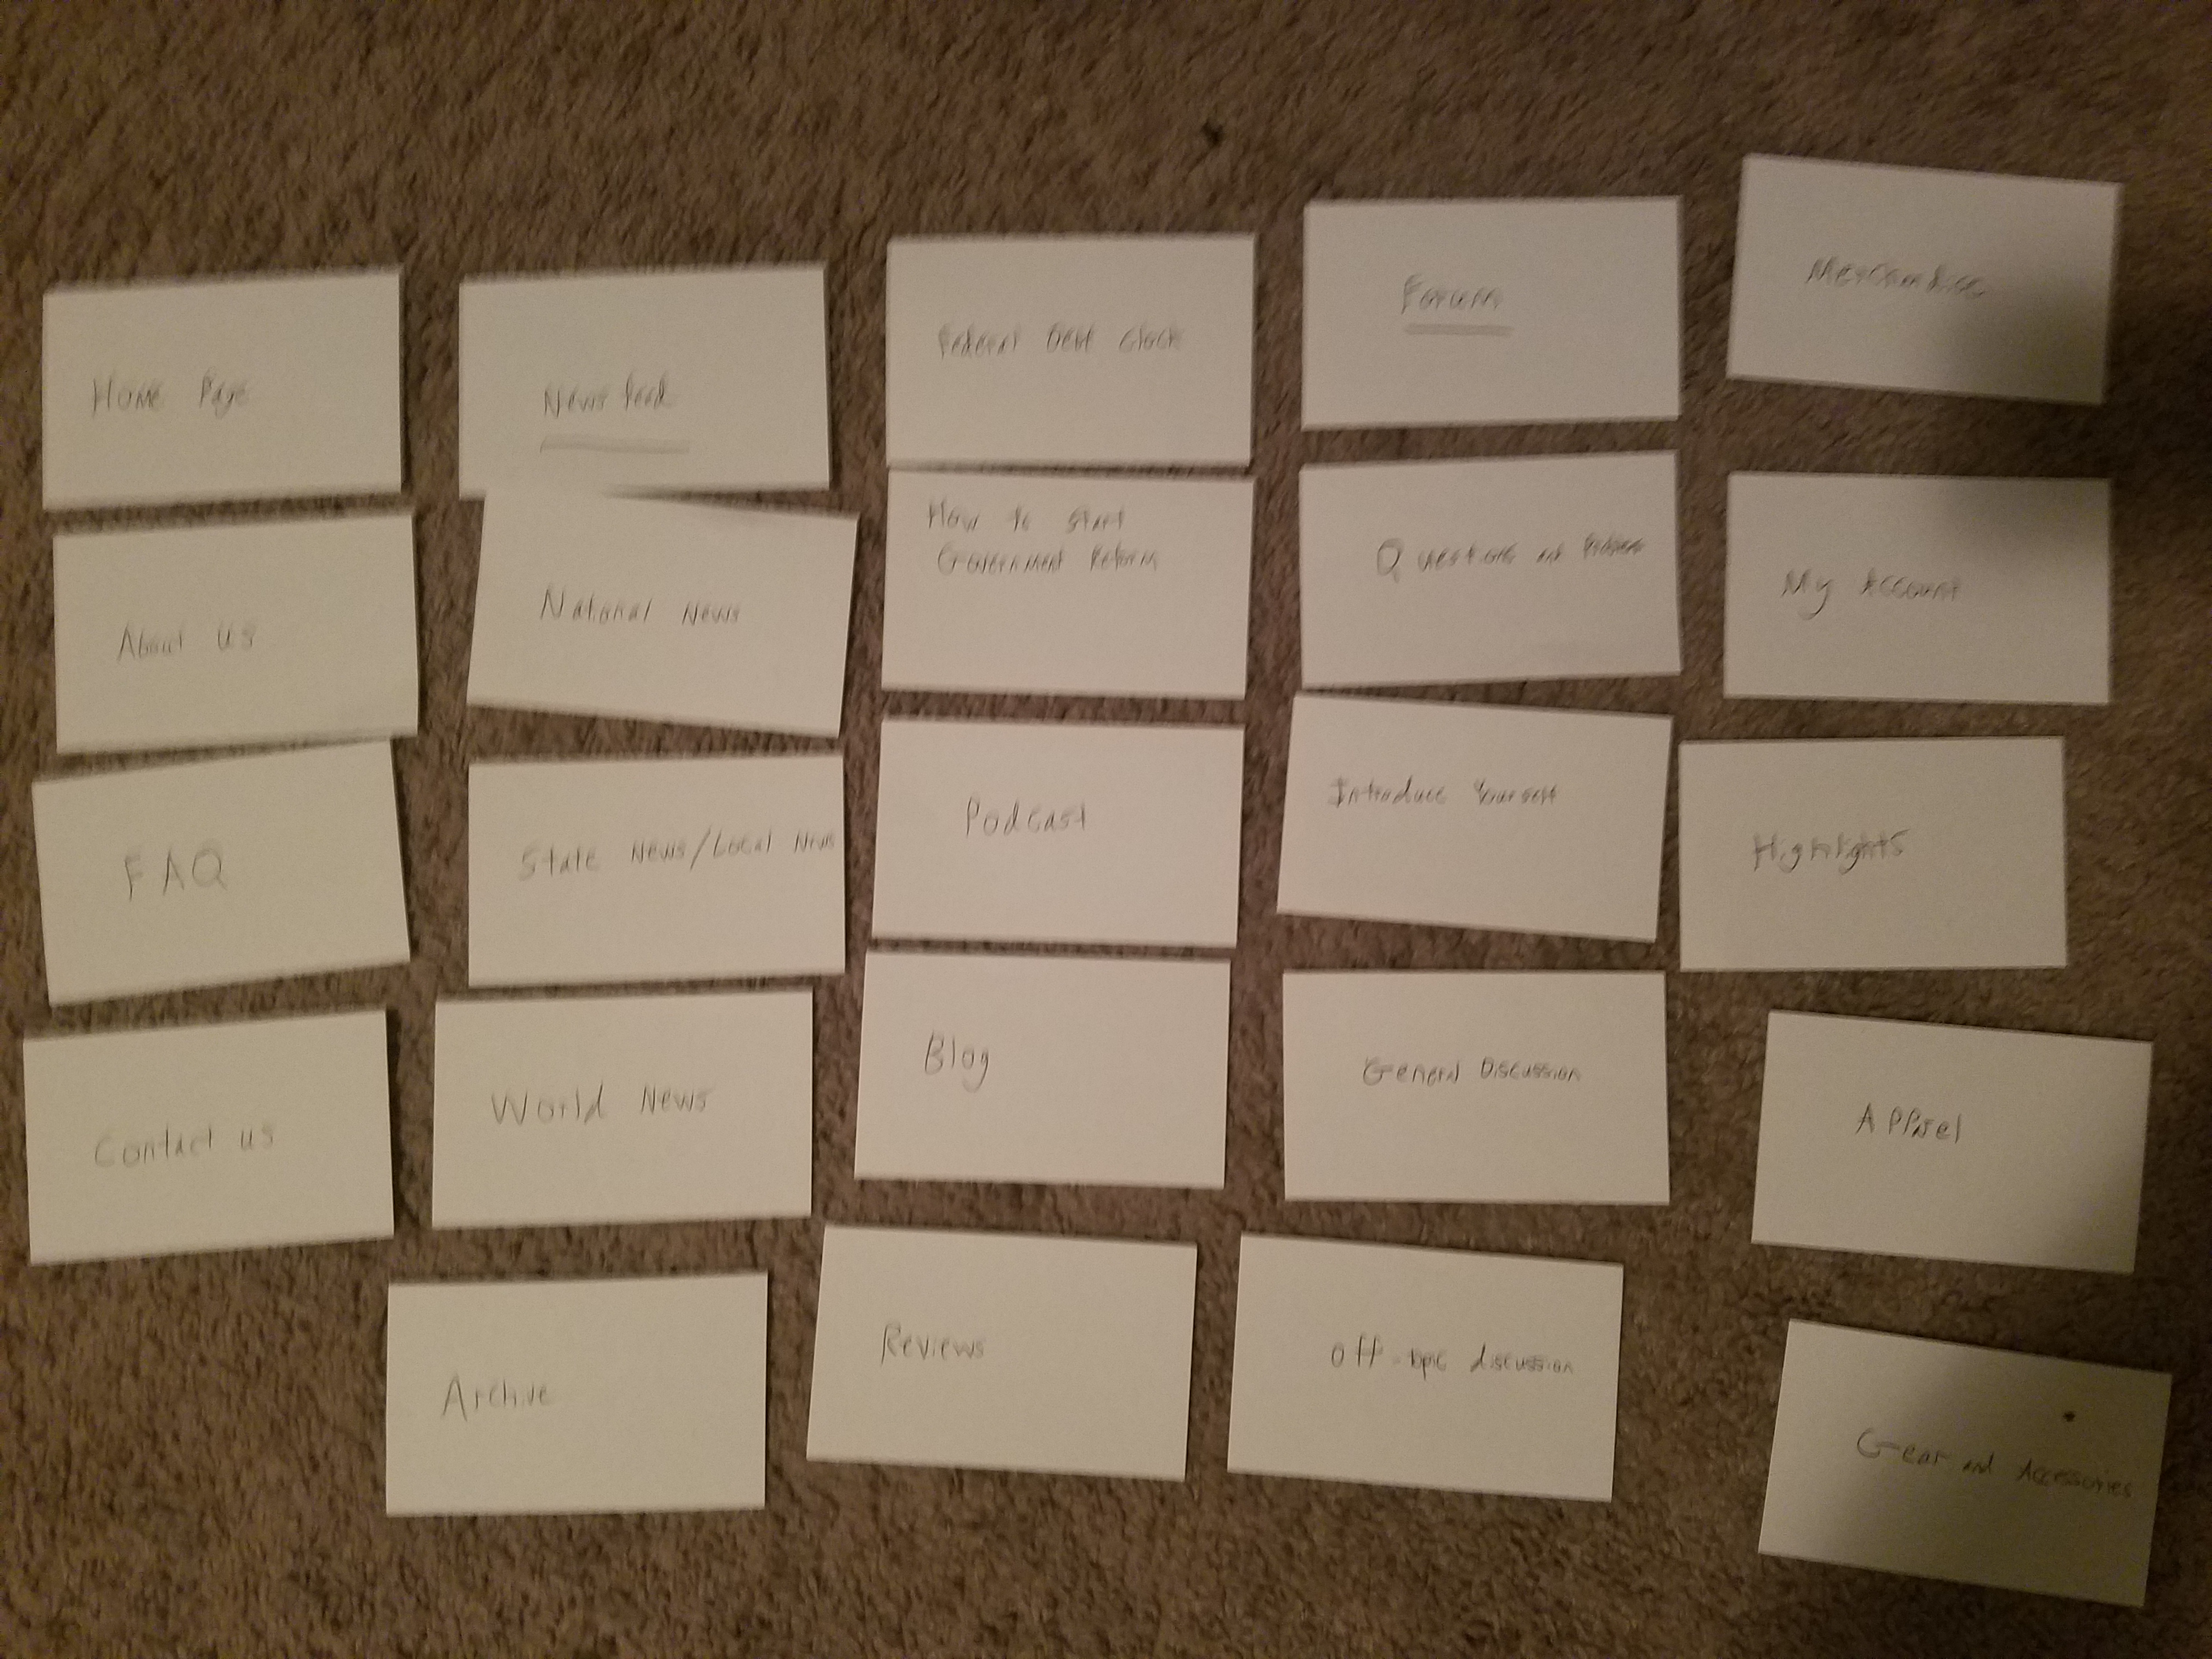 Home Page
About us
FAQ
Contact us
Newsfeed
National News
State News/Local News
World News
Archive
Federal Debt Clock
How to Start
Government Reform
Podcast
Blog
Reviews
Forum
Questions and
Introduce Yourself
General Discussion
Off-topic discussion
Merchandise
My Account
Highlights
Apparel
Gear and Accessories